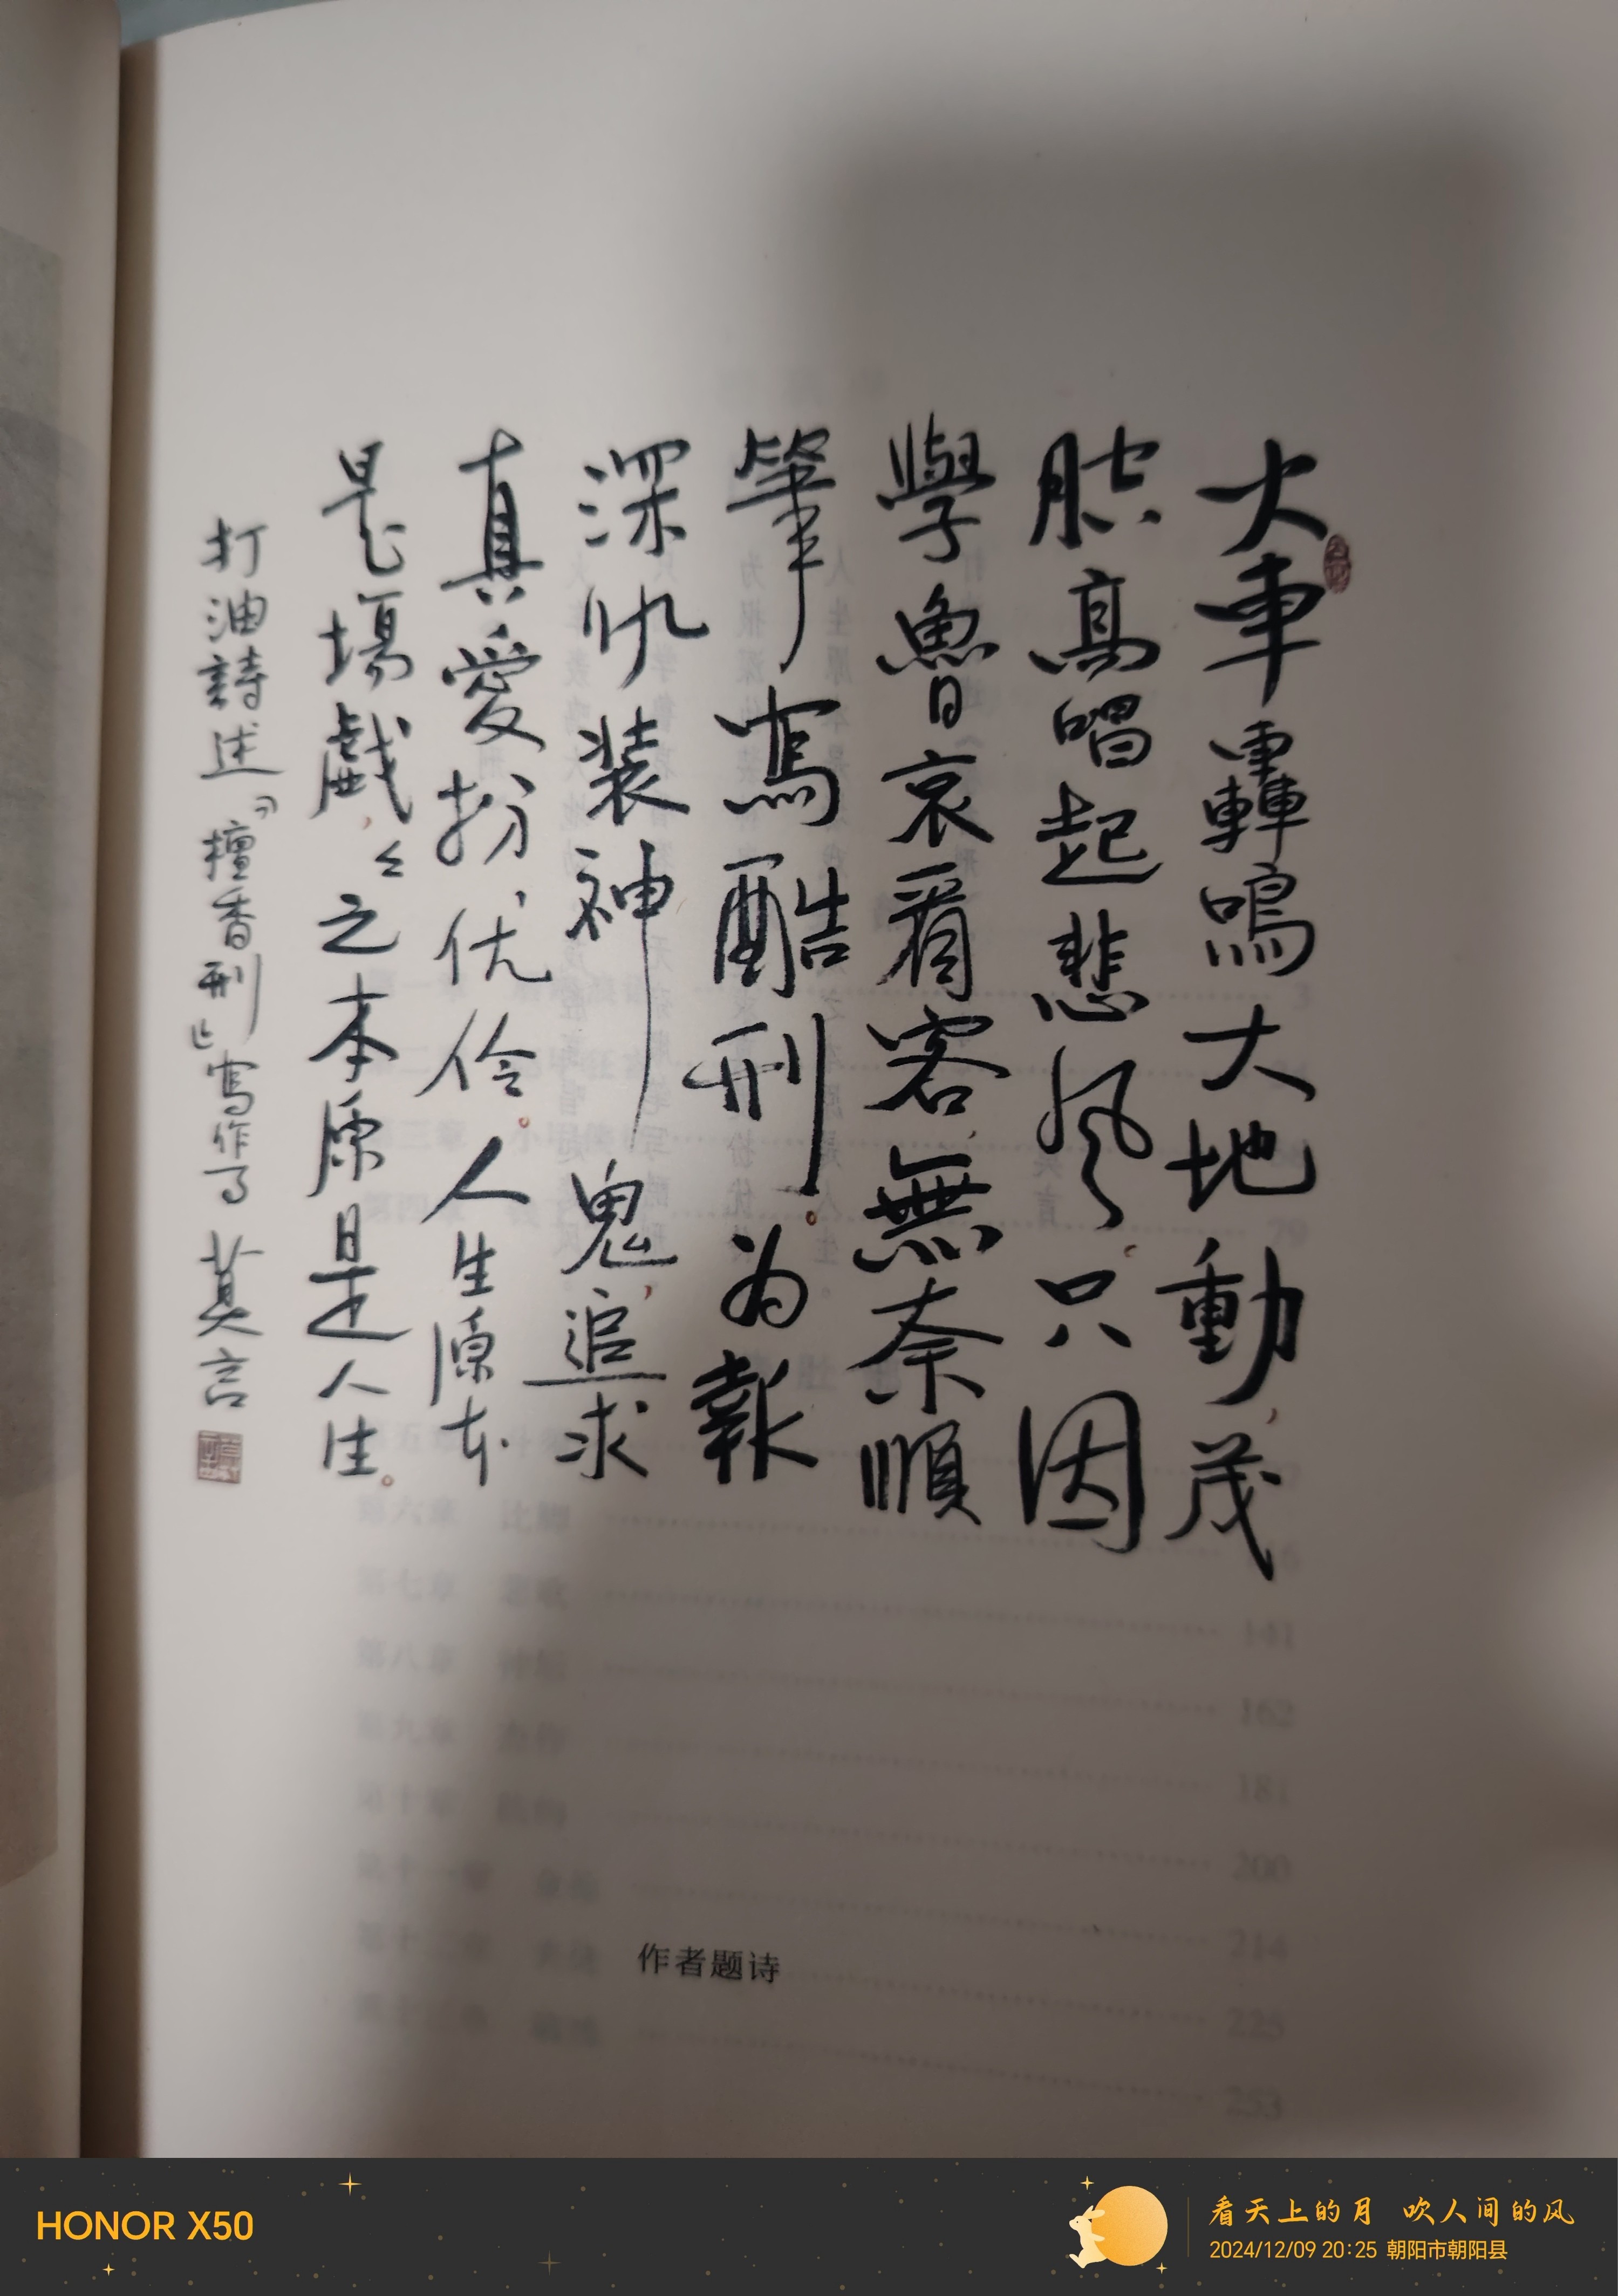 火車轟鳴大地動，茂
腔高唱起悲風。只因
學魯哀看客，無奈順
筆寫酷刑。为報
深仇装神鬼，追求
真愛扮优伶。人生原本
是場戲，々之本原是人生。
打油詩述『檀香刑』寫作 莫言
作者题诗
HONOR X50
看天上的月 吹人间的风
2024/12/09 20:25 朝阳市朝阳县